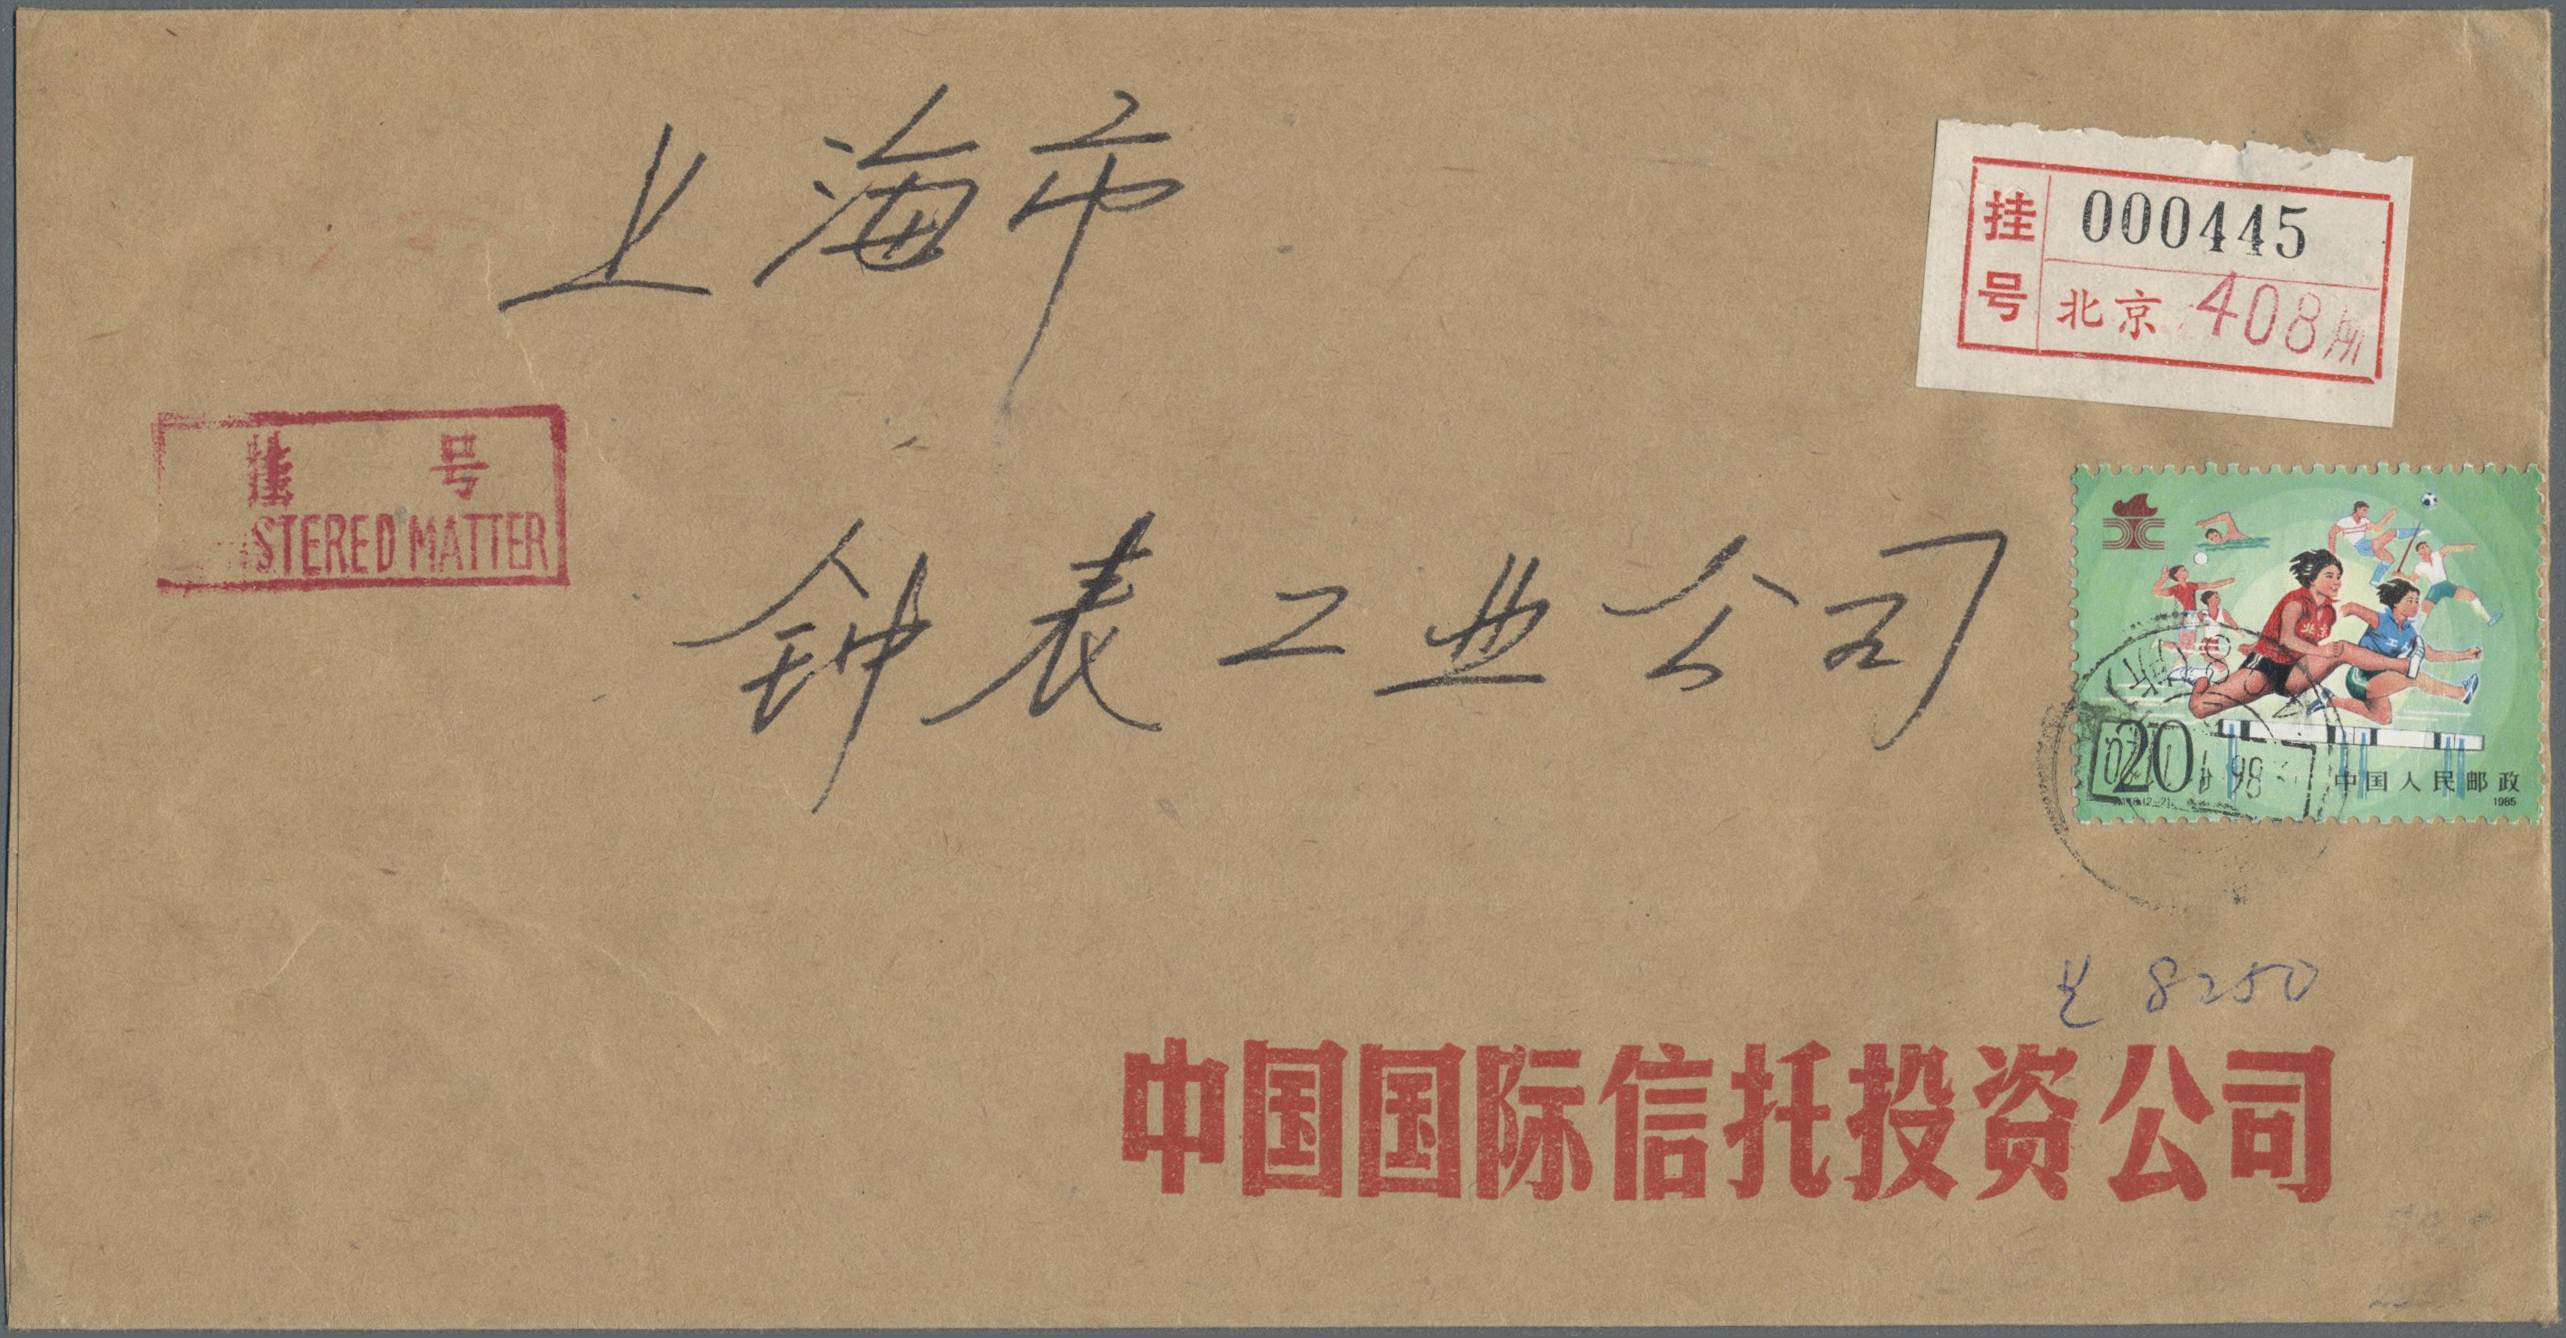 上海市
挂 000445
号 北京 408所
挂 号
STERED MATTER
钟表工业公司
20
中国人民邮政
1985
8250
中国国际信托投资公司